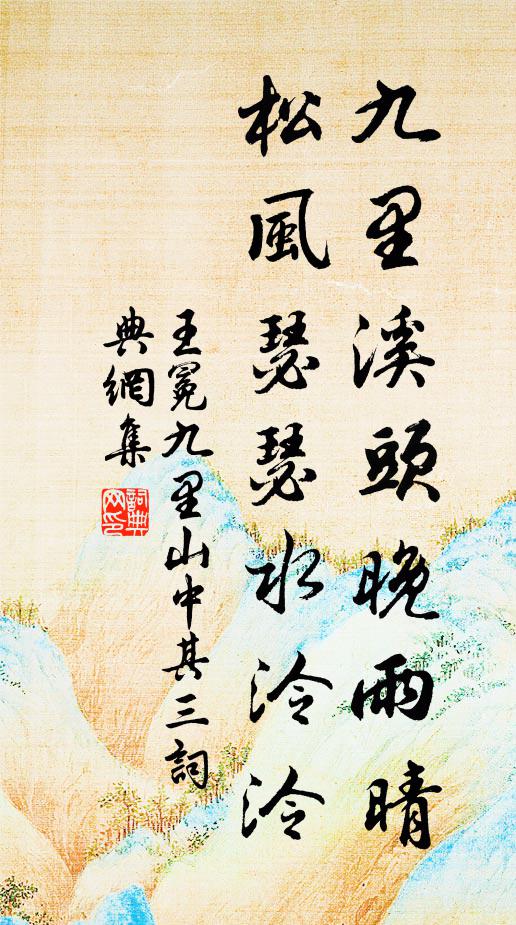 九里溪頭晚雨晴
松風瑟瑟水泠泠
王冕九里山中其三詞
典網集
詞典網印